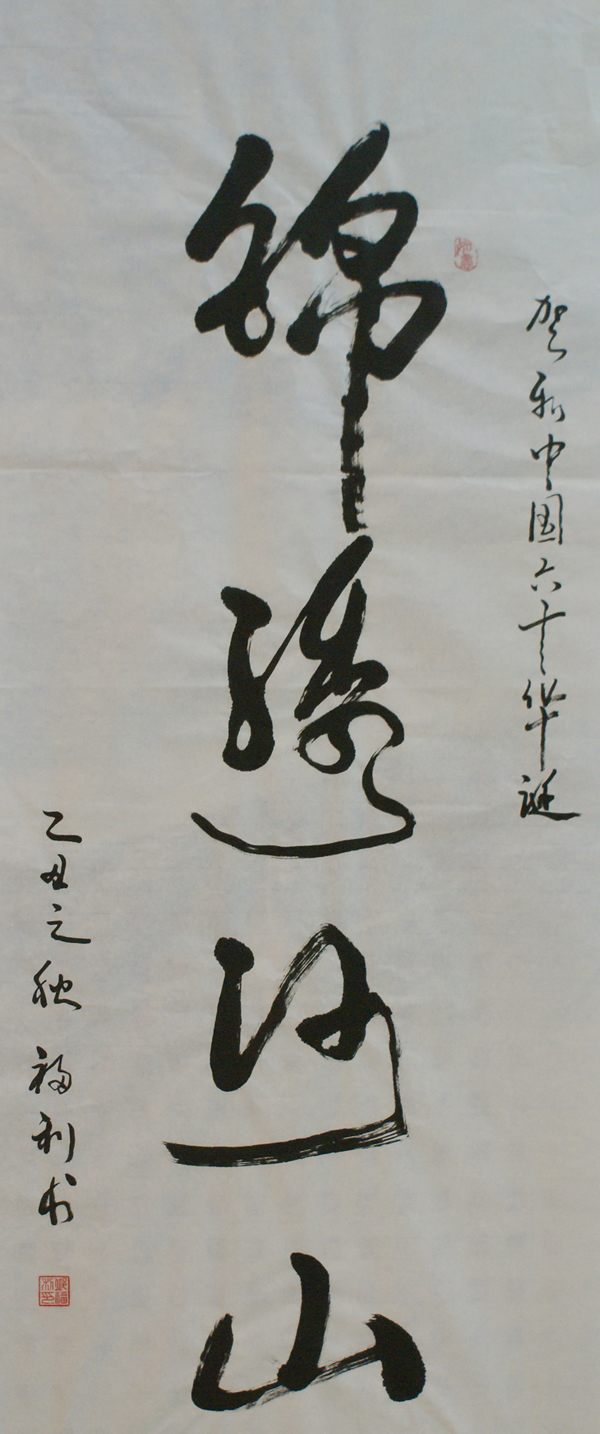 贺新中国六十华诞
锦绣河山
己丑之秋 福利书